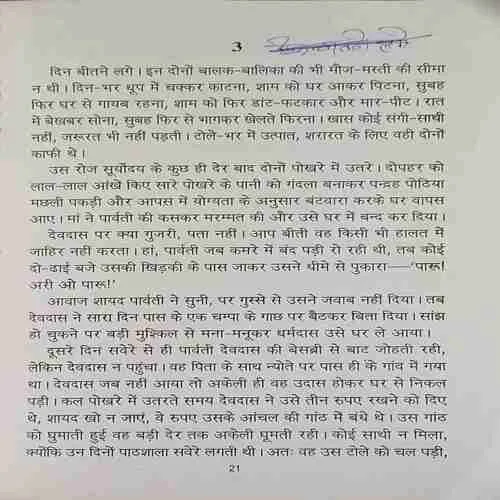 3
दिन बीतने लगे। इन दोनों बालक-बालिका की भी मौज-मस्ती की सीमा
न थी। दिन-भर धूप में चक्कर काटना, शाम को घर आकर पिटना, सुबह
फिर घर से गायब रहना, शाम को फिर डांट-फटकार और मार-पीट। रात
में बेखबर सोना, सुबह फिर से भागकर खेलते फिरना। खास कोई संगी-साथी
नहीं, जरूरत भी नहीं पड़ती। टोले-भर में उत्पात, शरारत के लिए वही दोनों
काफी थे।
उस रोज सूर्योदय के कुछ ही देर बाद दोनों पोखरे में उतरे। दोपहर को
लाल-लाल आंखें किए सारे पोखरे के पानी को गंदला बनाकर पन्द्रह पोठिया
मछली पकड़ी और आपस में योग्यता के अनुसार बंटवारा करके घर वापस
आए। मां ने पार्वती की कसकर मरम्मत की और उसे घर में बन्द कर दिया।
देवदास पर क्या गुजरी, पता नहीं। आप बीती वह किसी भी हालत में
जाहिर नहीं करता। हां, पार्वती जब कमरे में बंद पड़ी रो रही थी, तब कोई
दो-ढाई बजे उसकी खिड़की के पास जाकर उसने धीमे से पुकारा—‘पारू!
अरी ओ पारू!’
आवाज शायद पार्वती ने सुनी, पर गुस्से से उसने जवाब नहीं दिया। तब
देवदास ने सारा दिन पास के एक चम्पा के गाछ पर बैठकर बिता दिया। सांझ
हो चुकने पर बड़ी मुश्किल से मना-मनूकर धर्मदास उसे घर ले आया।
दूसरे दिन सवेरे से ही पार्वती देवदास की बेसब्री से बाट जोहती रही,
लेकिन देवदास न पहुंचा। वह पिता के साथ न्योते पर पास ही के गांव में गया
था। देवदास जब नहीं आया तो अकेली ही वह उदास होकर घर से निकल
पड़ी। कल पोखरे में उतरते समय देवदास ने उसे तीन रुपए रखने को दिए
थे, शायद खो न जाएं, वे रुपए उसके आंचल की गांठ में बंधे थे। उस गांठ
को घुमाती हुई वह बड़ी देर तक अकेली घूमती रही। कोई साथी न मिला,
क्योंकि उन दिनों पाठशाला सवेरे लगती थी। अतः वह उस टोले को चल पड़ी,
21